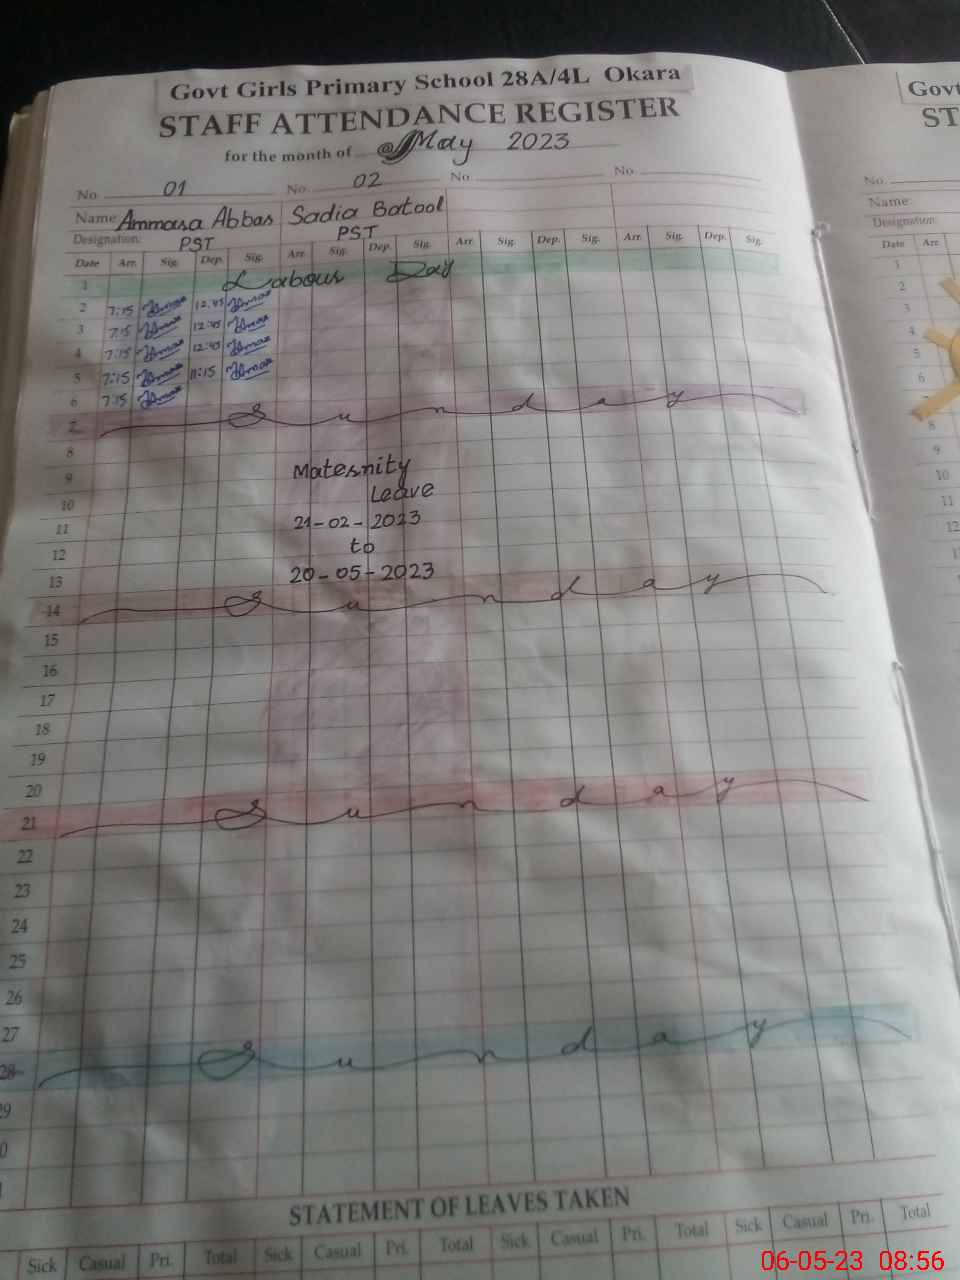 Govt Girls Primary School 28A/4L Okara
STAFF ATTENDANCE REGISTER
for the month of May 2023
No. 01 No. 02 No. No.
Name: Ammara Abbas Sadia Batool
Designation: PST PST
Date Arr. Sig. Dep. Sig. Arr. Sig. Dep. Sig. Arr. Sig. Dep. Sig. Arr. Sig. Dep. Sig.
1 Labour Day
2 7:15 12:45
3 7:15 12:45
4 7:15 12:45
5 7:15 11:15
6 7:15
7 Sunday
8
9 Maternity
10 Leave
11 21-02-2023
12 to
13 20-05-2023
14 Sunday
15
16
17
18
19
20
21 Sunday
22
23
24
25
26
27
28 Sunday
29
STATEMENT OF LEAVES TAKEN
Sick Casual Pri. Total Sick Casual Pri. Total Sick Casual Pri. Total Sick Casual Pri. Total
Govt
ST
No.
Name:
Designation:
Date Arr.
1
2
3
4
5
6
8
9
10
11
12
06-05-23 08:56